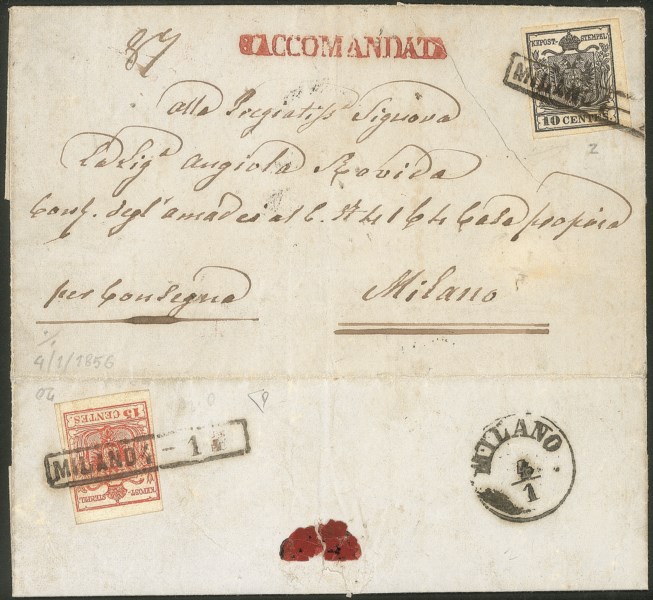 87
RACCOMANDATA
KKPOST-STEMPEL
10 CENTES
MILANO
Alla Pregiatissa Signora
La Siga Angiola Rovida
degl'amadei al C. N 4164 Casa propria
per Consegna
Milano
4/1/1856
15 CENTES.
KKPOST-STEMPEL
MILANO 4-1
MILANO
4/1